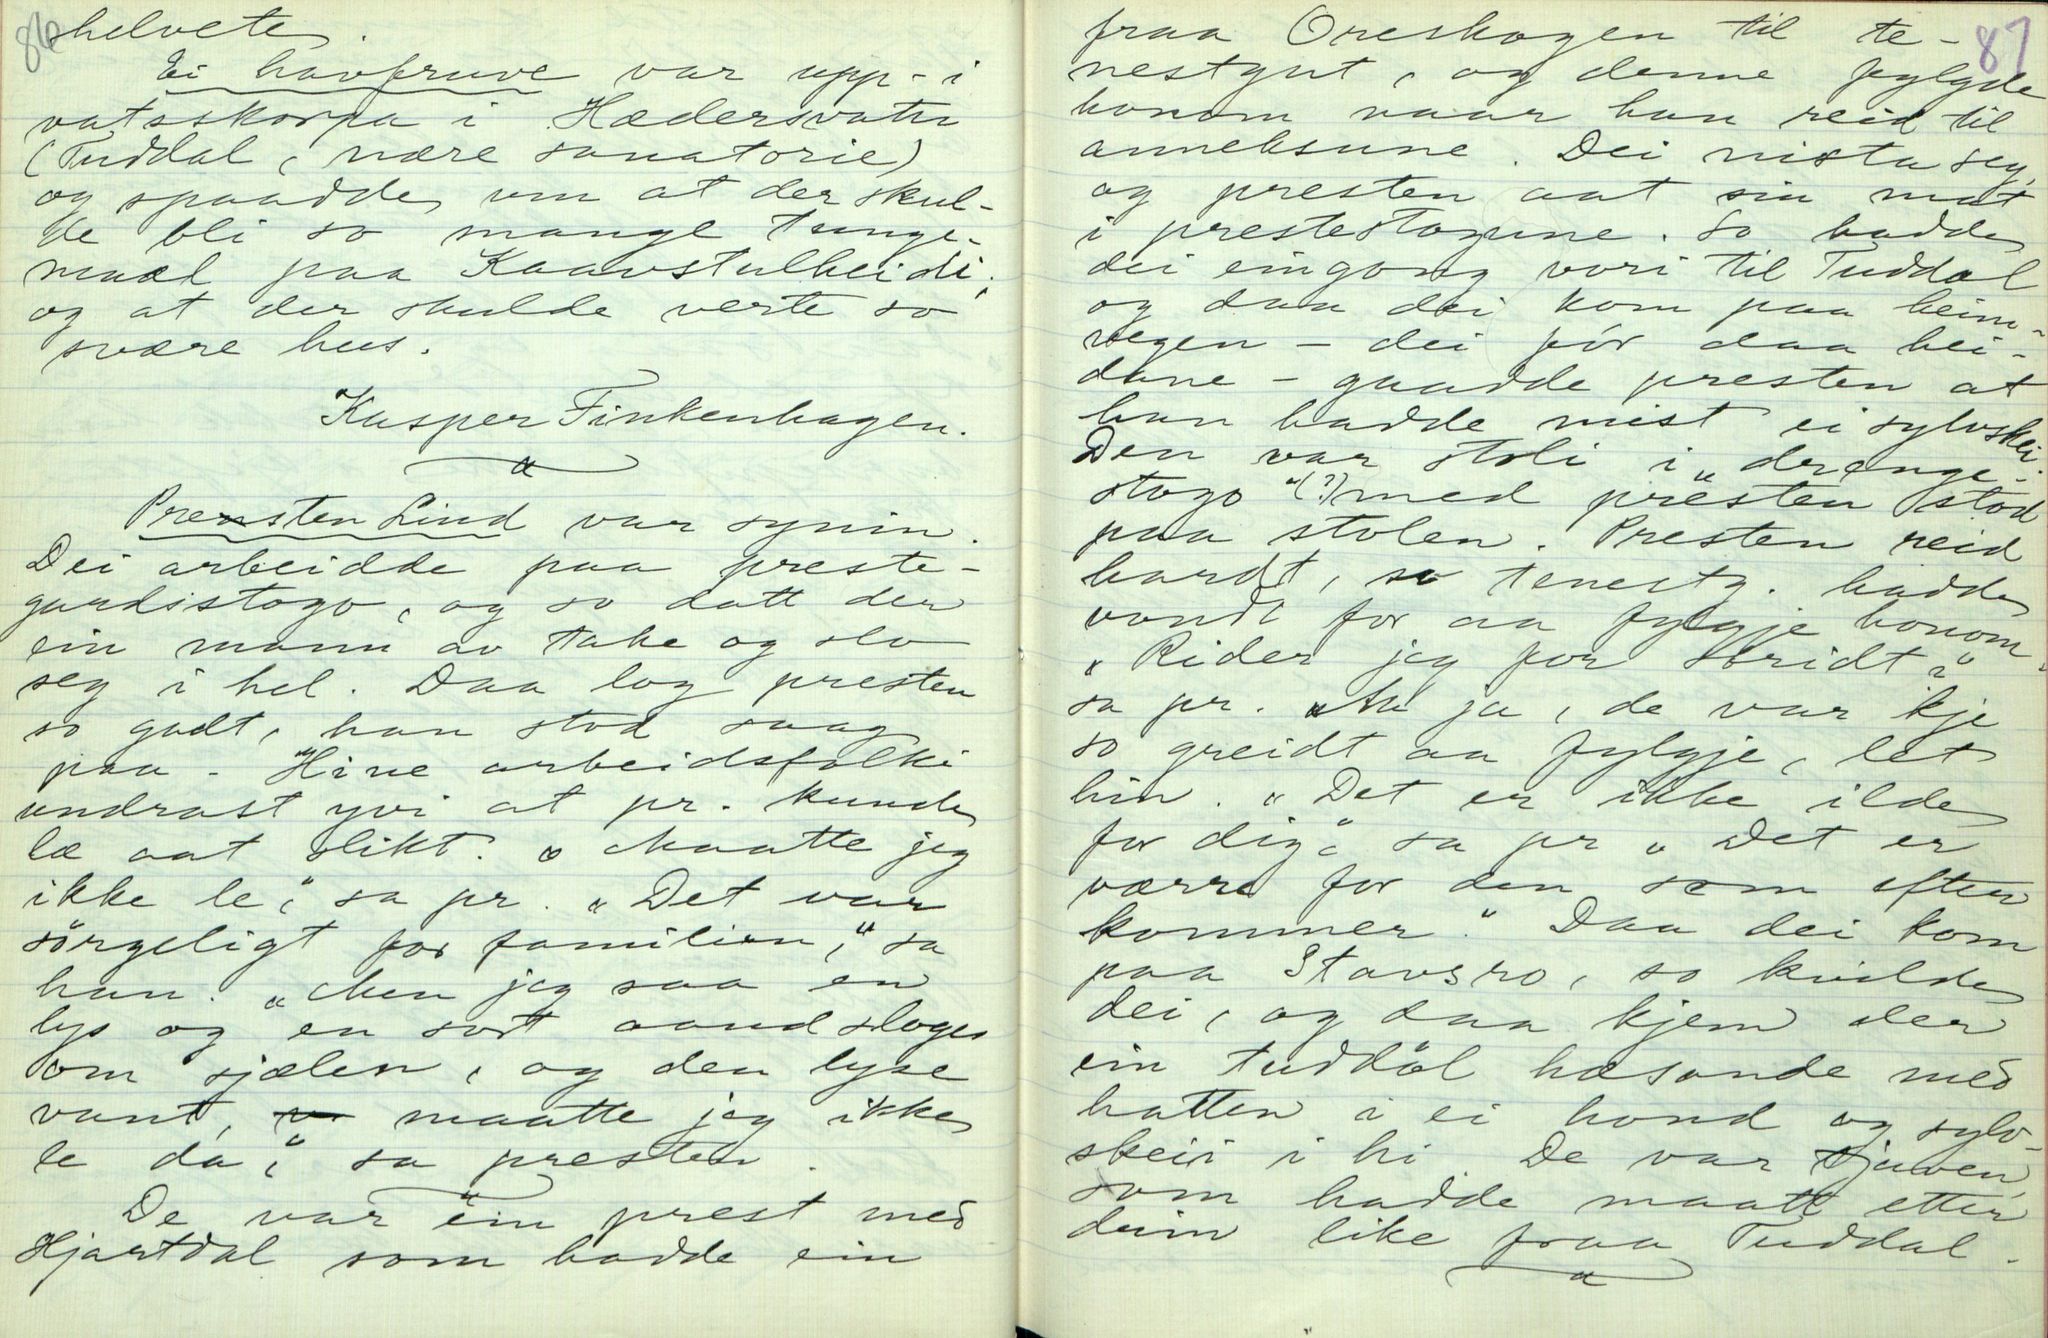 86
helvete.
Ei havfruve var upp-i
vatsskorpa i Hædersvatn
(Tuddal, nære sanatorie)
og spaadde um at der skul-
de bli so mange tunge-
maal paa Kaavstulheidi,
og at der skulde verte so
svære hus.
Kasper Finkenhagen.
Presten Lind var synin.
Dei arbeidde paa preste-
gardsstogo, og so datt der
ein mann av take og slo
seg i hel. Daa log presten
so godt, han stod saag
paa. Hine arbeidsfolki
undrast yvi at pr. kunde
læ aat slikt. „Maatte jeg
ikke le,“ sa pr. „Det var
sörgeligt for familien,“ sa
han. „Men jeg saa en
lys og en sort aand sloges
om sjælen, og den lyse
vant, maatte jeg ikke
le da,“ sa presten.
De var ein prest med
Hjartdal som hadde ein
87
fraa Oreskogen til te-
nestgut, og denne fylgde
honom naar han reid til
anneksune. Dei nista seg,
og presten aat sin mat
i prestestogune. So hadde
dei eingong vori til Tuddal
og daa dei kom paa heim-
vegen – dei fór daa hei-
dane – gaadde presten at
han hadde mist ei sylvskei.
Den var stoli i „drenge-
stogo“(?) med presten stod
paa stolen. Presten reid
hardt, so tenestg. hadde
vondt for aa fylgje honom.
„Rider jeg for stridt?“
sa pr. „Aa ja, de var kje
so greidt aa fylgje, let
hin. „Det er ikke ilde
for dig,“ sa pr „Det er
værre for den som efter
kommer.“ Daa dei kom
paa Stavsro, so kvilde
dei, og daa kjem der
ein tuddöl hæsande med
hatten i ei hond og sylv-
skei i hi. De var tjuven,
som hadde maatt etter
deim like fraa Tuddal.